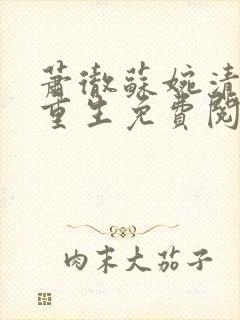 蕭徹蘇婉清
重生免費閱
肉末大茄子